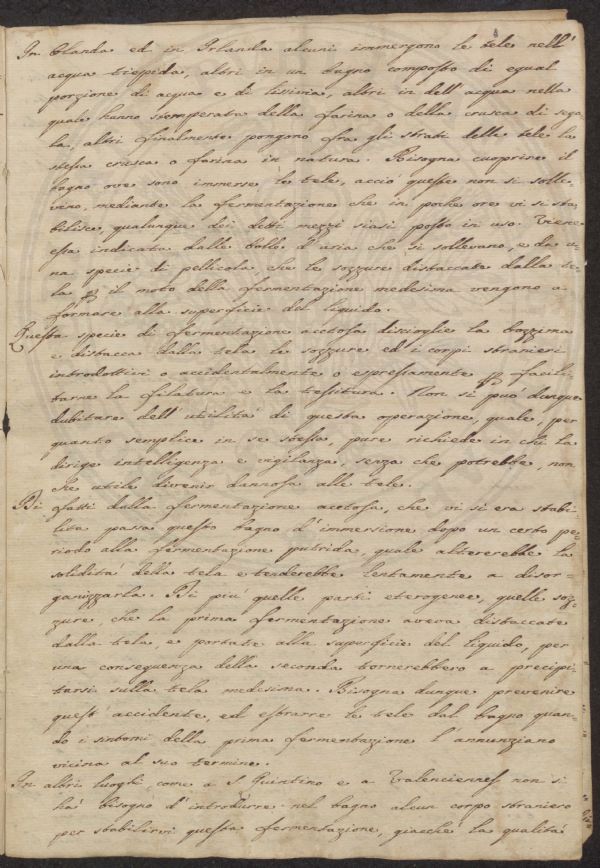 In Olanda ed in Irlanda alcuni immergono le tele nell'
acqua tiepida, altri in un bagno composto di egual
porzione di acqua e di lissivia, altri in dell'acqua nella
quale hanno stemperata della farina o della crusca di sega
la, altri finalmente pongono fra gli strati delle tele la
stessa crusca o farina in natura. Bisogna cuoprire il
bagno ove sono immerse le tele, acciò queste non si solle
vino, mediante la fermentazione che in poche ore vi si sta
bilisce, qualunque dei detti mezzi siasi posto in uso. Viene
essa indicata dalle bolle d'aria che si sollevano, e da u
na specie di pellicola che le sozzure distaccate dalla te
la il moto della fermentazione medesima vengono a
formare alla superficie del liquido.
Questa specie di fermentazione acetosa discioglie la bozzima
e distacca dalla tela le sozzure ed i corpi stranieri
introdottivi o accidentalmente o espressamente facili
tarne la filatura e la tessitura. Non si può dunque
dubitare dell'utilità di questa operazione, quale, per
quanto semplice in se stessa, pure richiede in chi la
dirige intelligenza e vigilanza, senza che potrebbe, non
che utile divenir dannosa alle tele.
Di fatti dalla fermentazione acetosa, che vi si era stabi
lita passa questo bagno d'immersione dopo un certo pe-
riodo alla fermentazione putrida, quale altererebbe la
solidità della tela e tenderebbe lentamente a disor-
ganizzarla. Di più quelle parti eterogenee, quelle soz-
zure, che la prima fermentazione aveva distaccate
dalla tela, e portate alla superficie del liquido, per
una conseguenza della seconda tornerebbero a precipi
tarsi sulla tela medesima. Bisogna dunque prevenire
quest'accidente, ed estrarre le tele dal bagno quan-
do i sintomi della prima fermentazione l'annunziano
vicina al suo termine.
In altri luoghi, come a S. Quintino e a Valenciennes non si
há bisogno d'introdurre nel bagno alcun corpo straniero
per stabilirvi questa fermentazione, giacchè la qualità